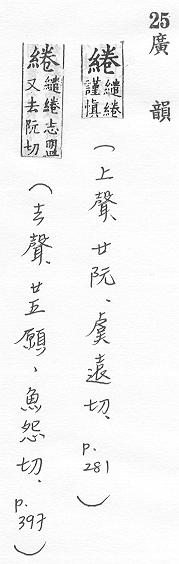 25 廣韻
綣 繾綣謹慎 (上聲、廿阮、虞遠切、p. 281)
綣 繾綣志盟又去阮切 (去聲、廿五願、魚怨切、p. 397)